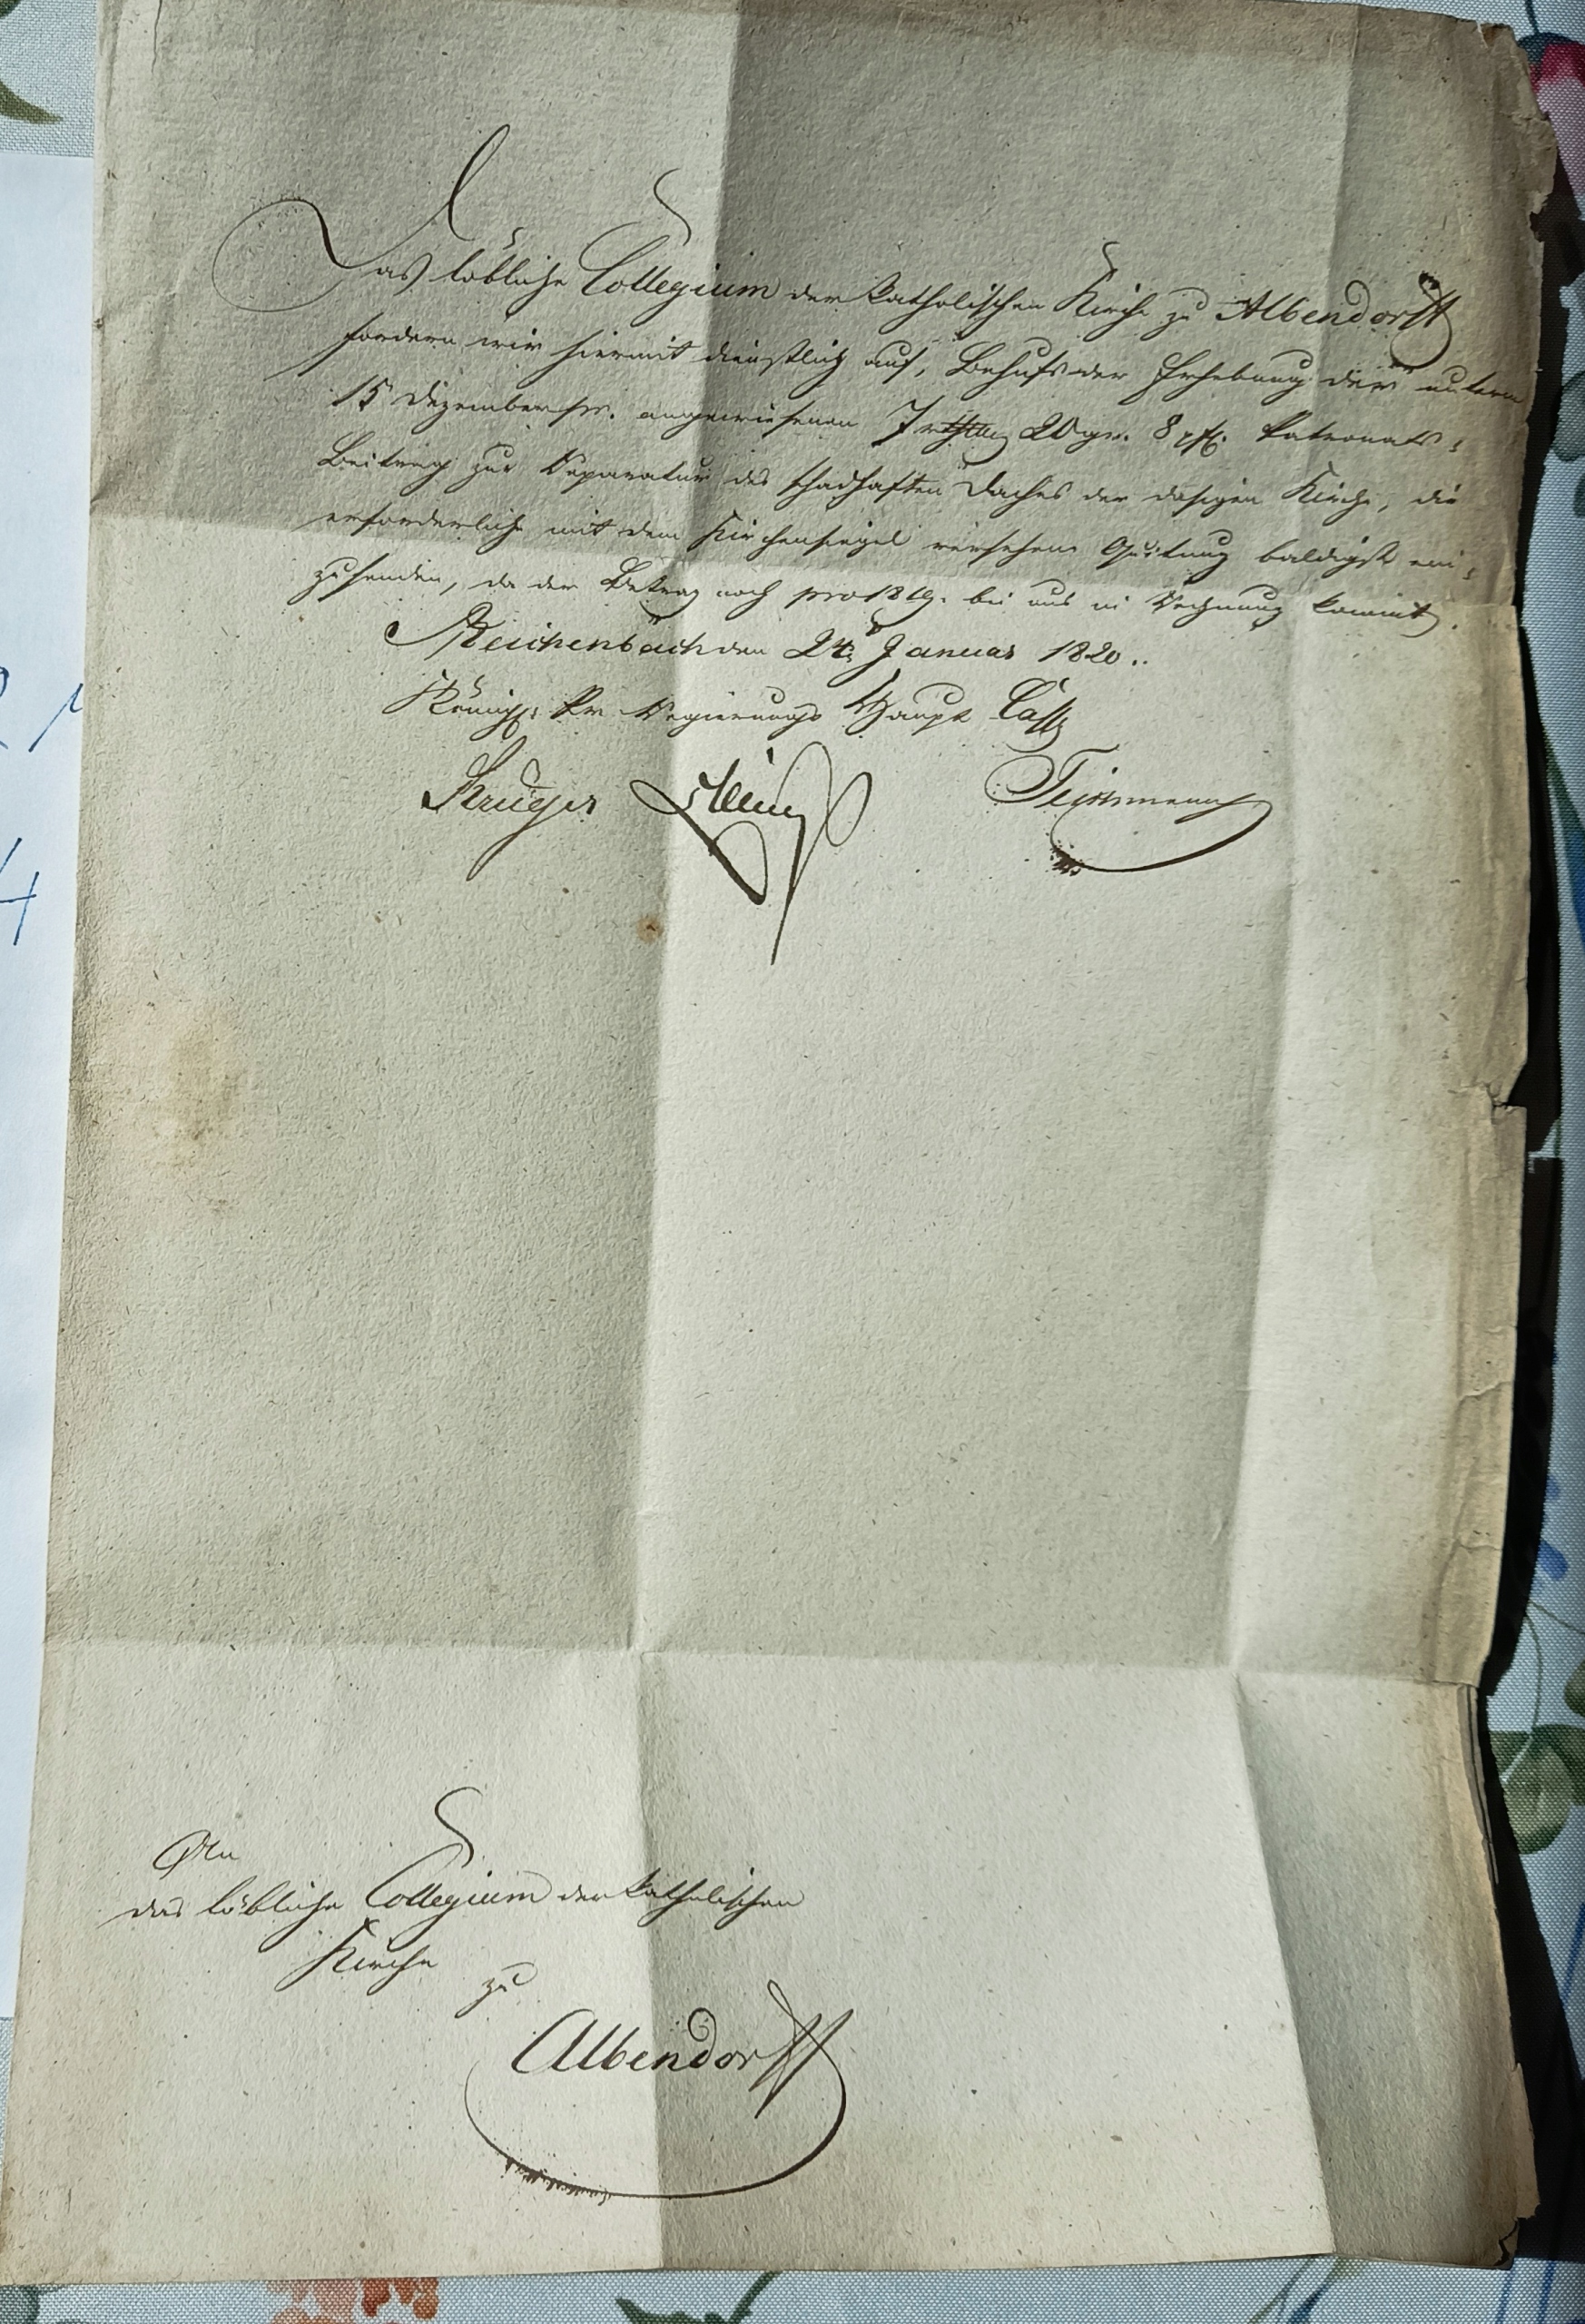 Das löbliche Collegium der katholischen Kirche zu Albendorff
fordern wir hiermit dienstlich auf, Behufs der Erhebung der unterm
15 Dezember pr. angewiesenen 7 rthlr 20 gr. 8 pf. Patronats-
Beitrag zur Reparatur des schadhaften Daches der dasigen Kirche, die
erforderliche mit dem Kirchensiegel versehene Quitung baldigst ein-
zusenden, da der Betrag noch pro 1819. bei uns in Rechnung kommt.
Reichenbach den 24. Januar 1820.
Königl. Pr Regierungs Haupt Casse
Krüger
An
das löbliche Collegium der katholischen
Kirche
zu
Albendorff